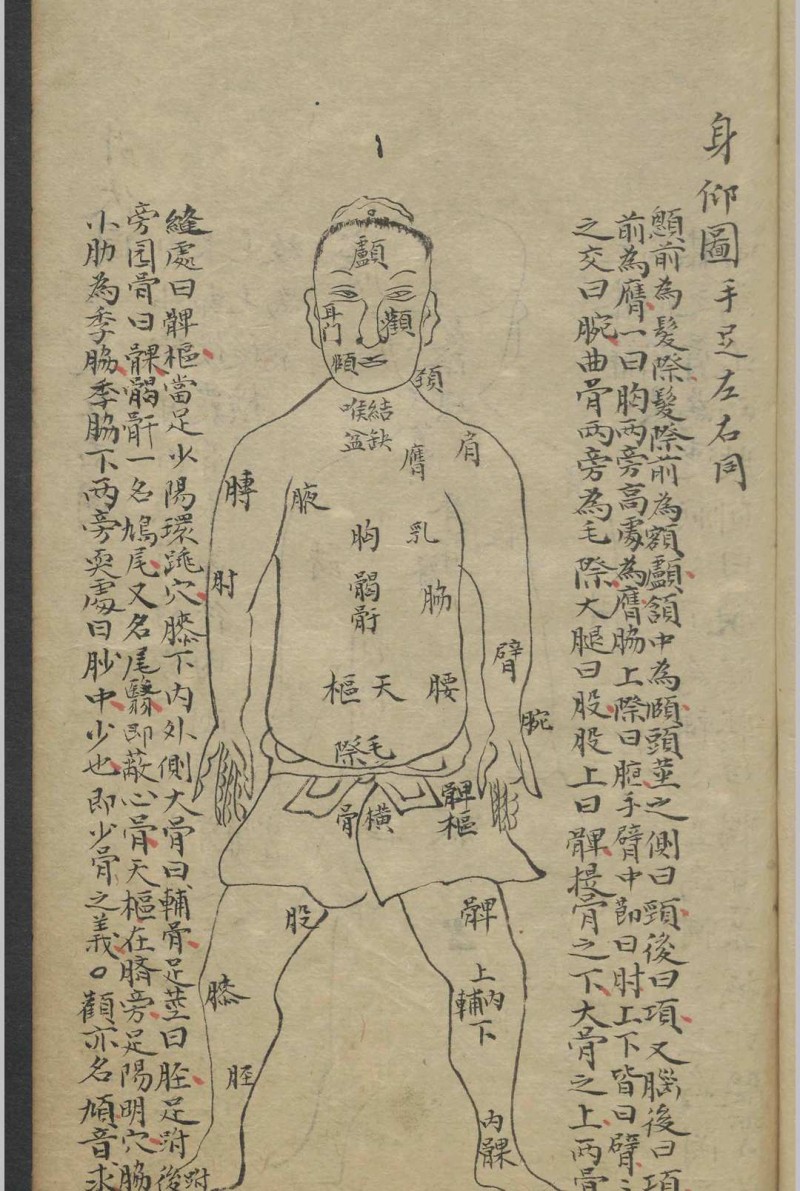 身仰圖手足左右同
顖前為髮際髮際前為額顱頷中為頤頭莖之側曰頸後曰項又腦後曰項
前為膺一曰胸兩旁高處為膺脇上際曰腋手臂中節曰肘上下皆曰臂
之交曰腕曲骨兩旁為毛際大腿曰股股上曰髀揵骨之下大骨之上兩骨
顱
耳门
顴
頤
頚
結喉
缺盆
膺
肩
膊
腋
胸
乳
肘
𩩲骬
脇
臂
天樞
腰
腕
毛際
橫骨
髀樞
股
髀
膝
內輔上下
胫
內踝
縫處曰髀樞當足少陽環跳穴膝下內外側大骨曰輔骨足莖曰胫足跗後跗
旁圓骨曰髁𩩲骬一名鳩尾又名尾翳即蔽心骨天樞在臍旁足陽明穴脇
小肋為季脇季脇下兩旁耎處曰䏚中少也即少骨之義○顴亦名頄音求